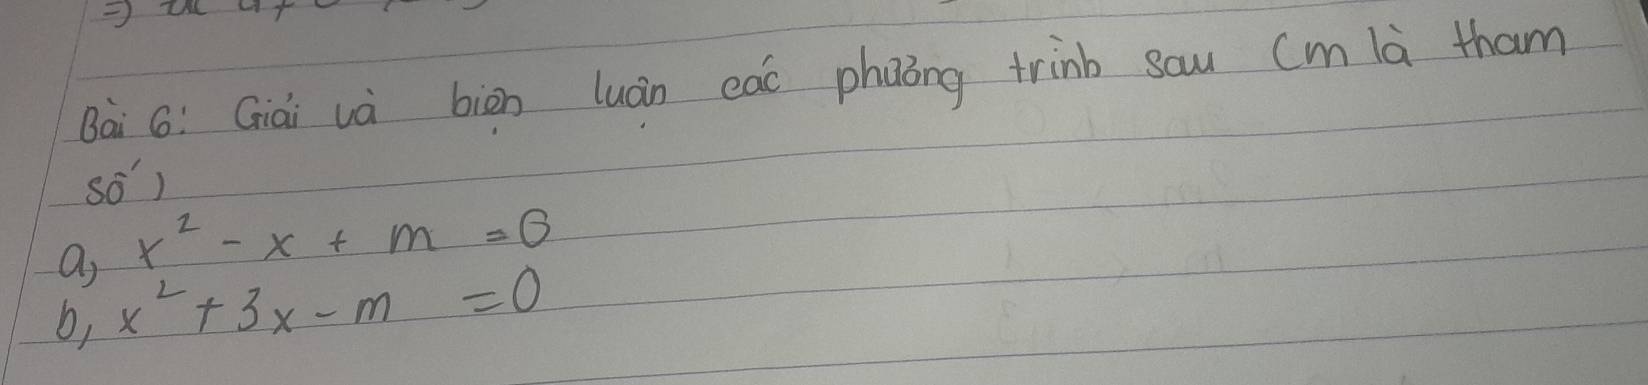 Bài 6: Giải và biện luận các phương trình sau (m là tham
số)
a, x² - x + m = 0
b, x² + 3x - m = 0